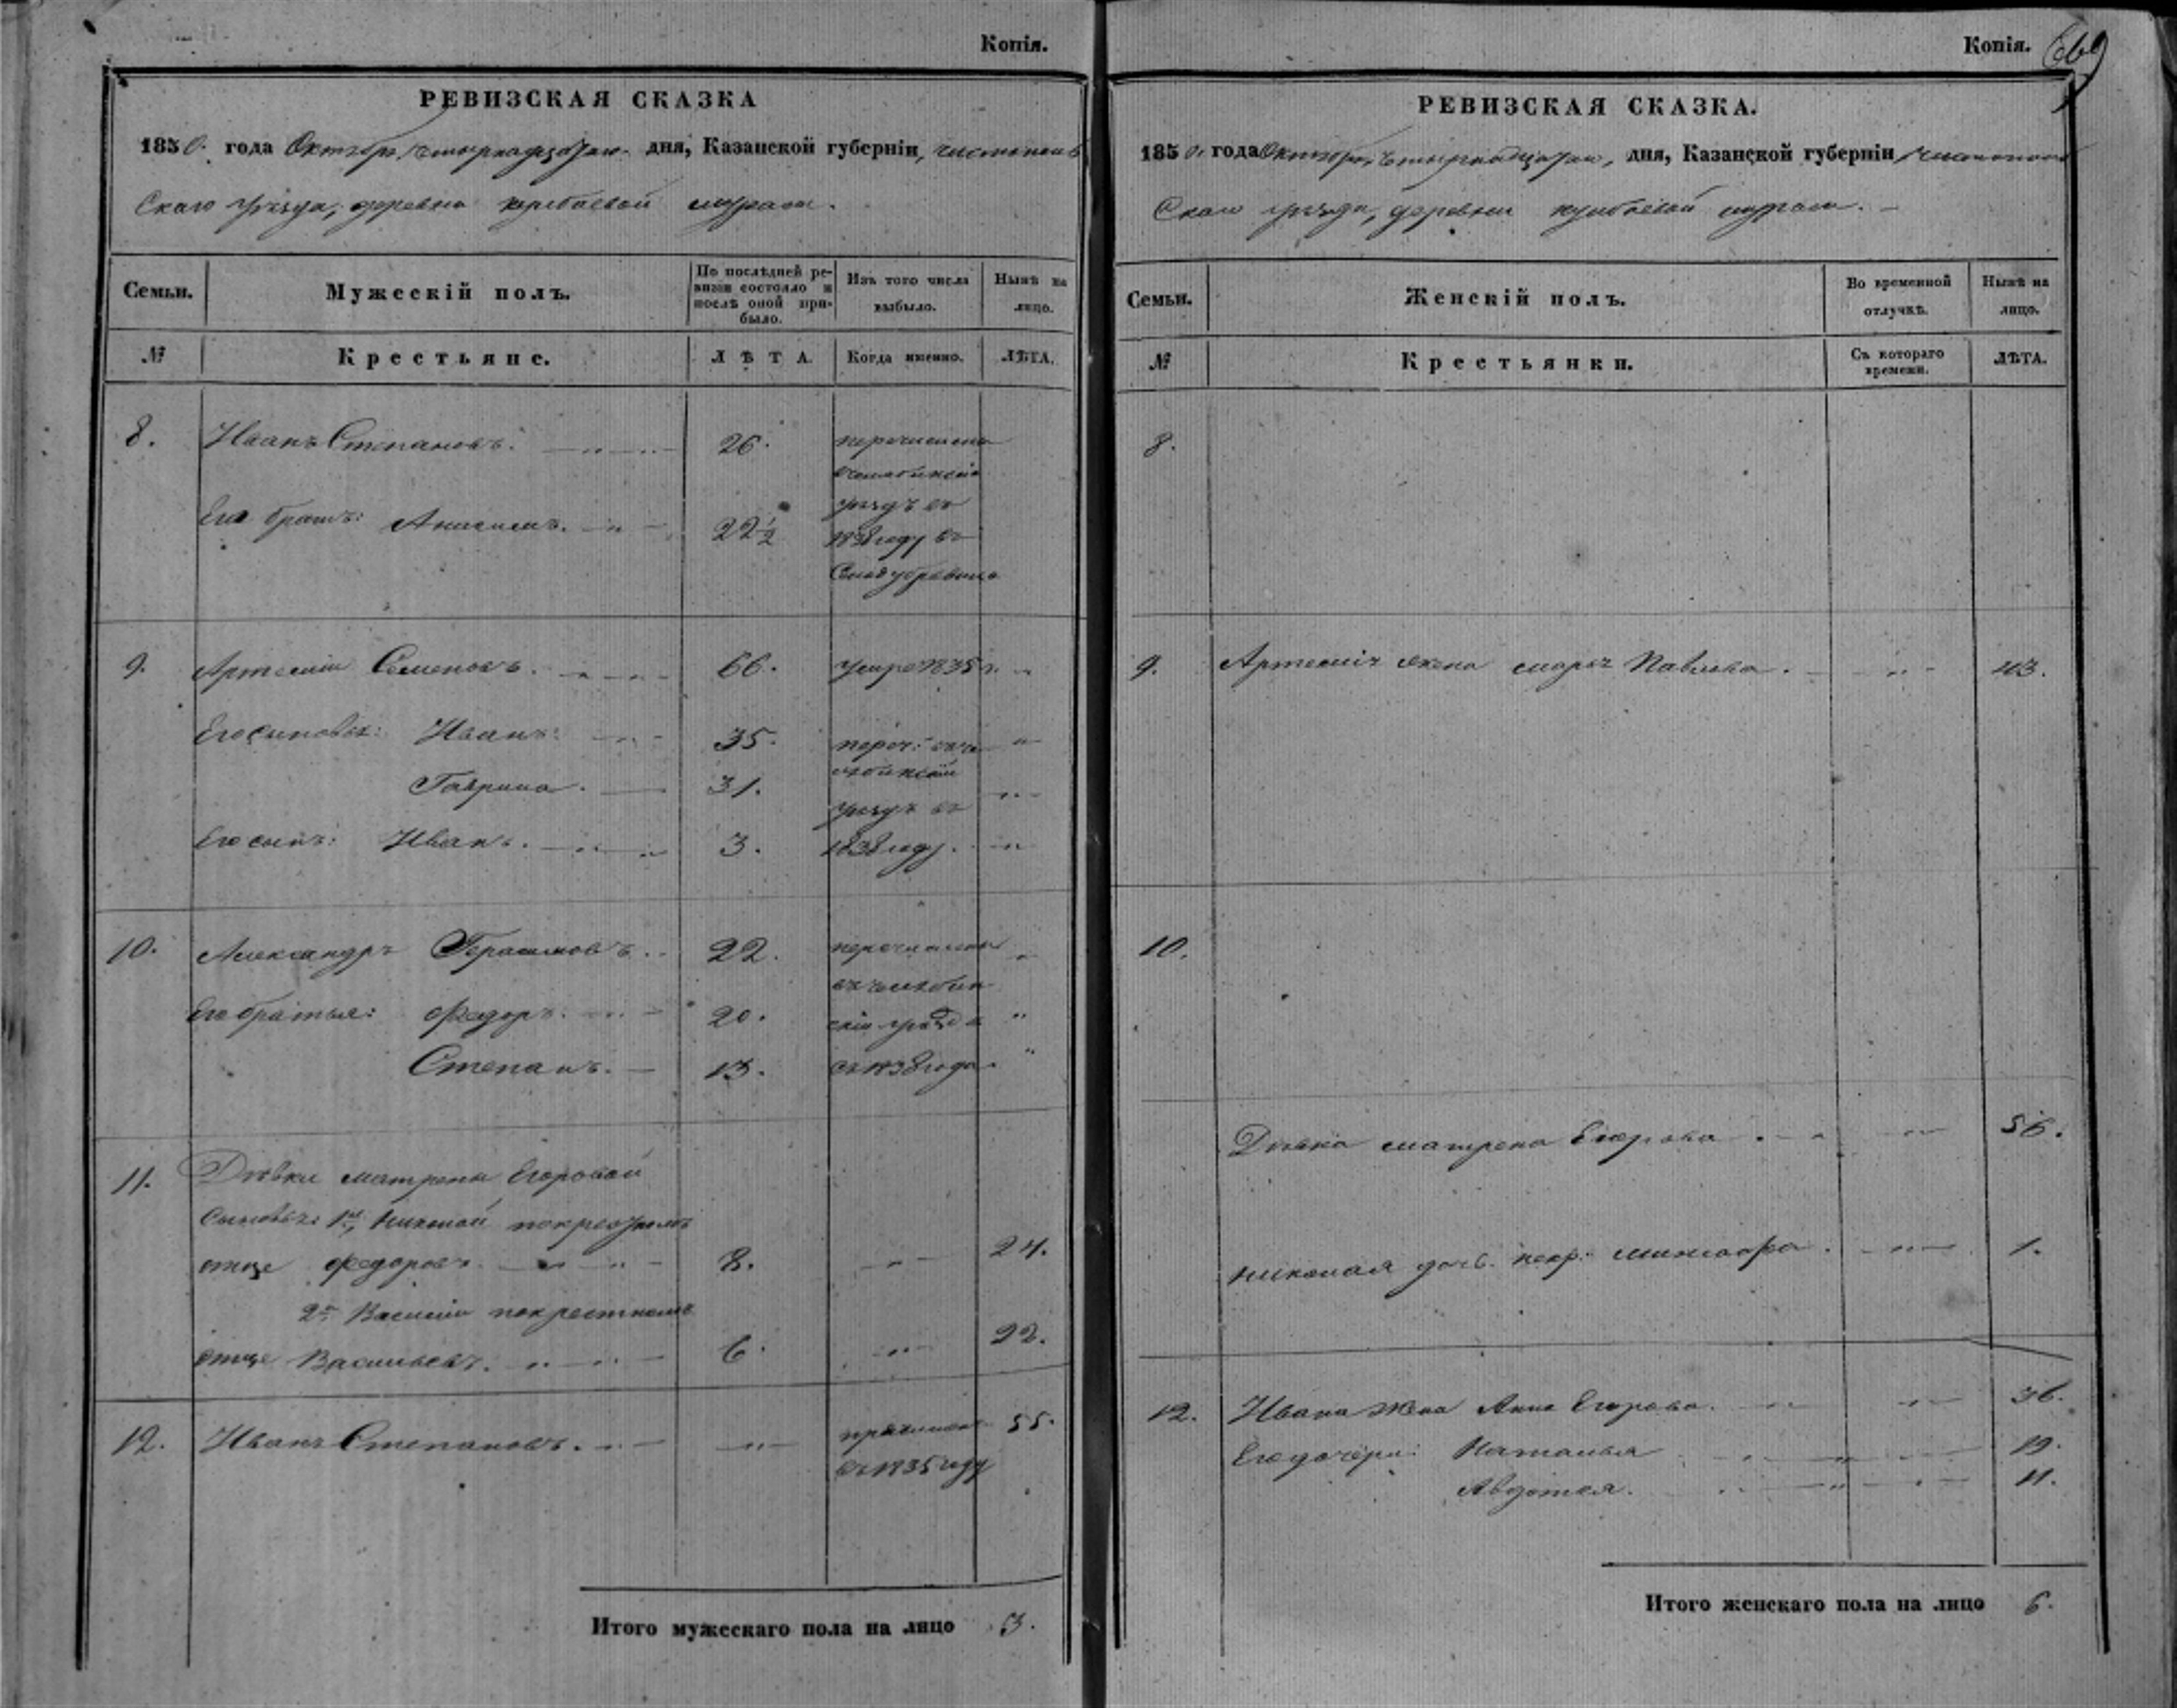 Копія.
РЕВИЗСКАЯ СКАЗКА
1850. года Октября четырнадцатаго дня, Казанской губерніи, чистополь
скаго уѣзда, деревни
Семьи.
Мужескій полъ.
По послѣдней ре-
визіи состояло и
послѣ оной при-
было.
Изъ того числа
выбыло.
Нынѣ на
лицо.
№
Крестьяне.
ЛѢТА.
Когда именно.
ЛѢТА.
8. Иванъ Степановъ. 26. перечислены
въ челябинскій
уѣздъ въ
Его братъ: Анисимъ. 22 1/2 1838 году въ
9. Артемій Семеновъ. 66. умре 1835 г.
Его сыновья: Иванъ. 35. переч: въ че
лябинскій
Гаврила. 31. уѣздъ въ
Его сынъ: Иванъ. 3. 1838 году.
10. Александръ Герасимовъ. 22. перечислены
въ челябин
Его братья: Федоръ. 20. скій уѣздъ
Степанъ. 13. съ 1838 года
11. Дѣвки матрены Егоровой
сыновья: 1й, Николай по крестномъ
отце Федоровъ. 8. 24.
2й Василій по крестномъ
отце Васильевъ. 6. 22.
12. Иванъ Степановъ. причислен 55.
въ 1835 году
Итого мужескаго пола на лицо 3.
Копія.
669
РЕВИЗСКАЯ СКАЗКА.
1850. года Октября четырнадцатаго, дня, Казанской губерніи чистополь
скаго уѣзда, деревни
Семьи.
Женскій полъ.
Во временной
отлучкѣ.
Нынѣ на
лицо.
№
Крестьянки.
Съ котораго
времени.
ЛѢТА.
8.
9. Артемія жена марья Павлова. 43.
10.
Дѣвка матрена Егорова 56.
Николая дочь. некр: 1.
12. Ивана жена Анна Егорова. 36.
Его дочери: Наталья 19.
Авдотья. 11.
Итого женскаго пола на лицо 6.